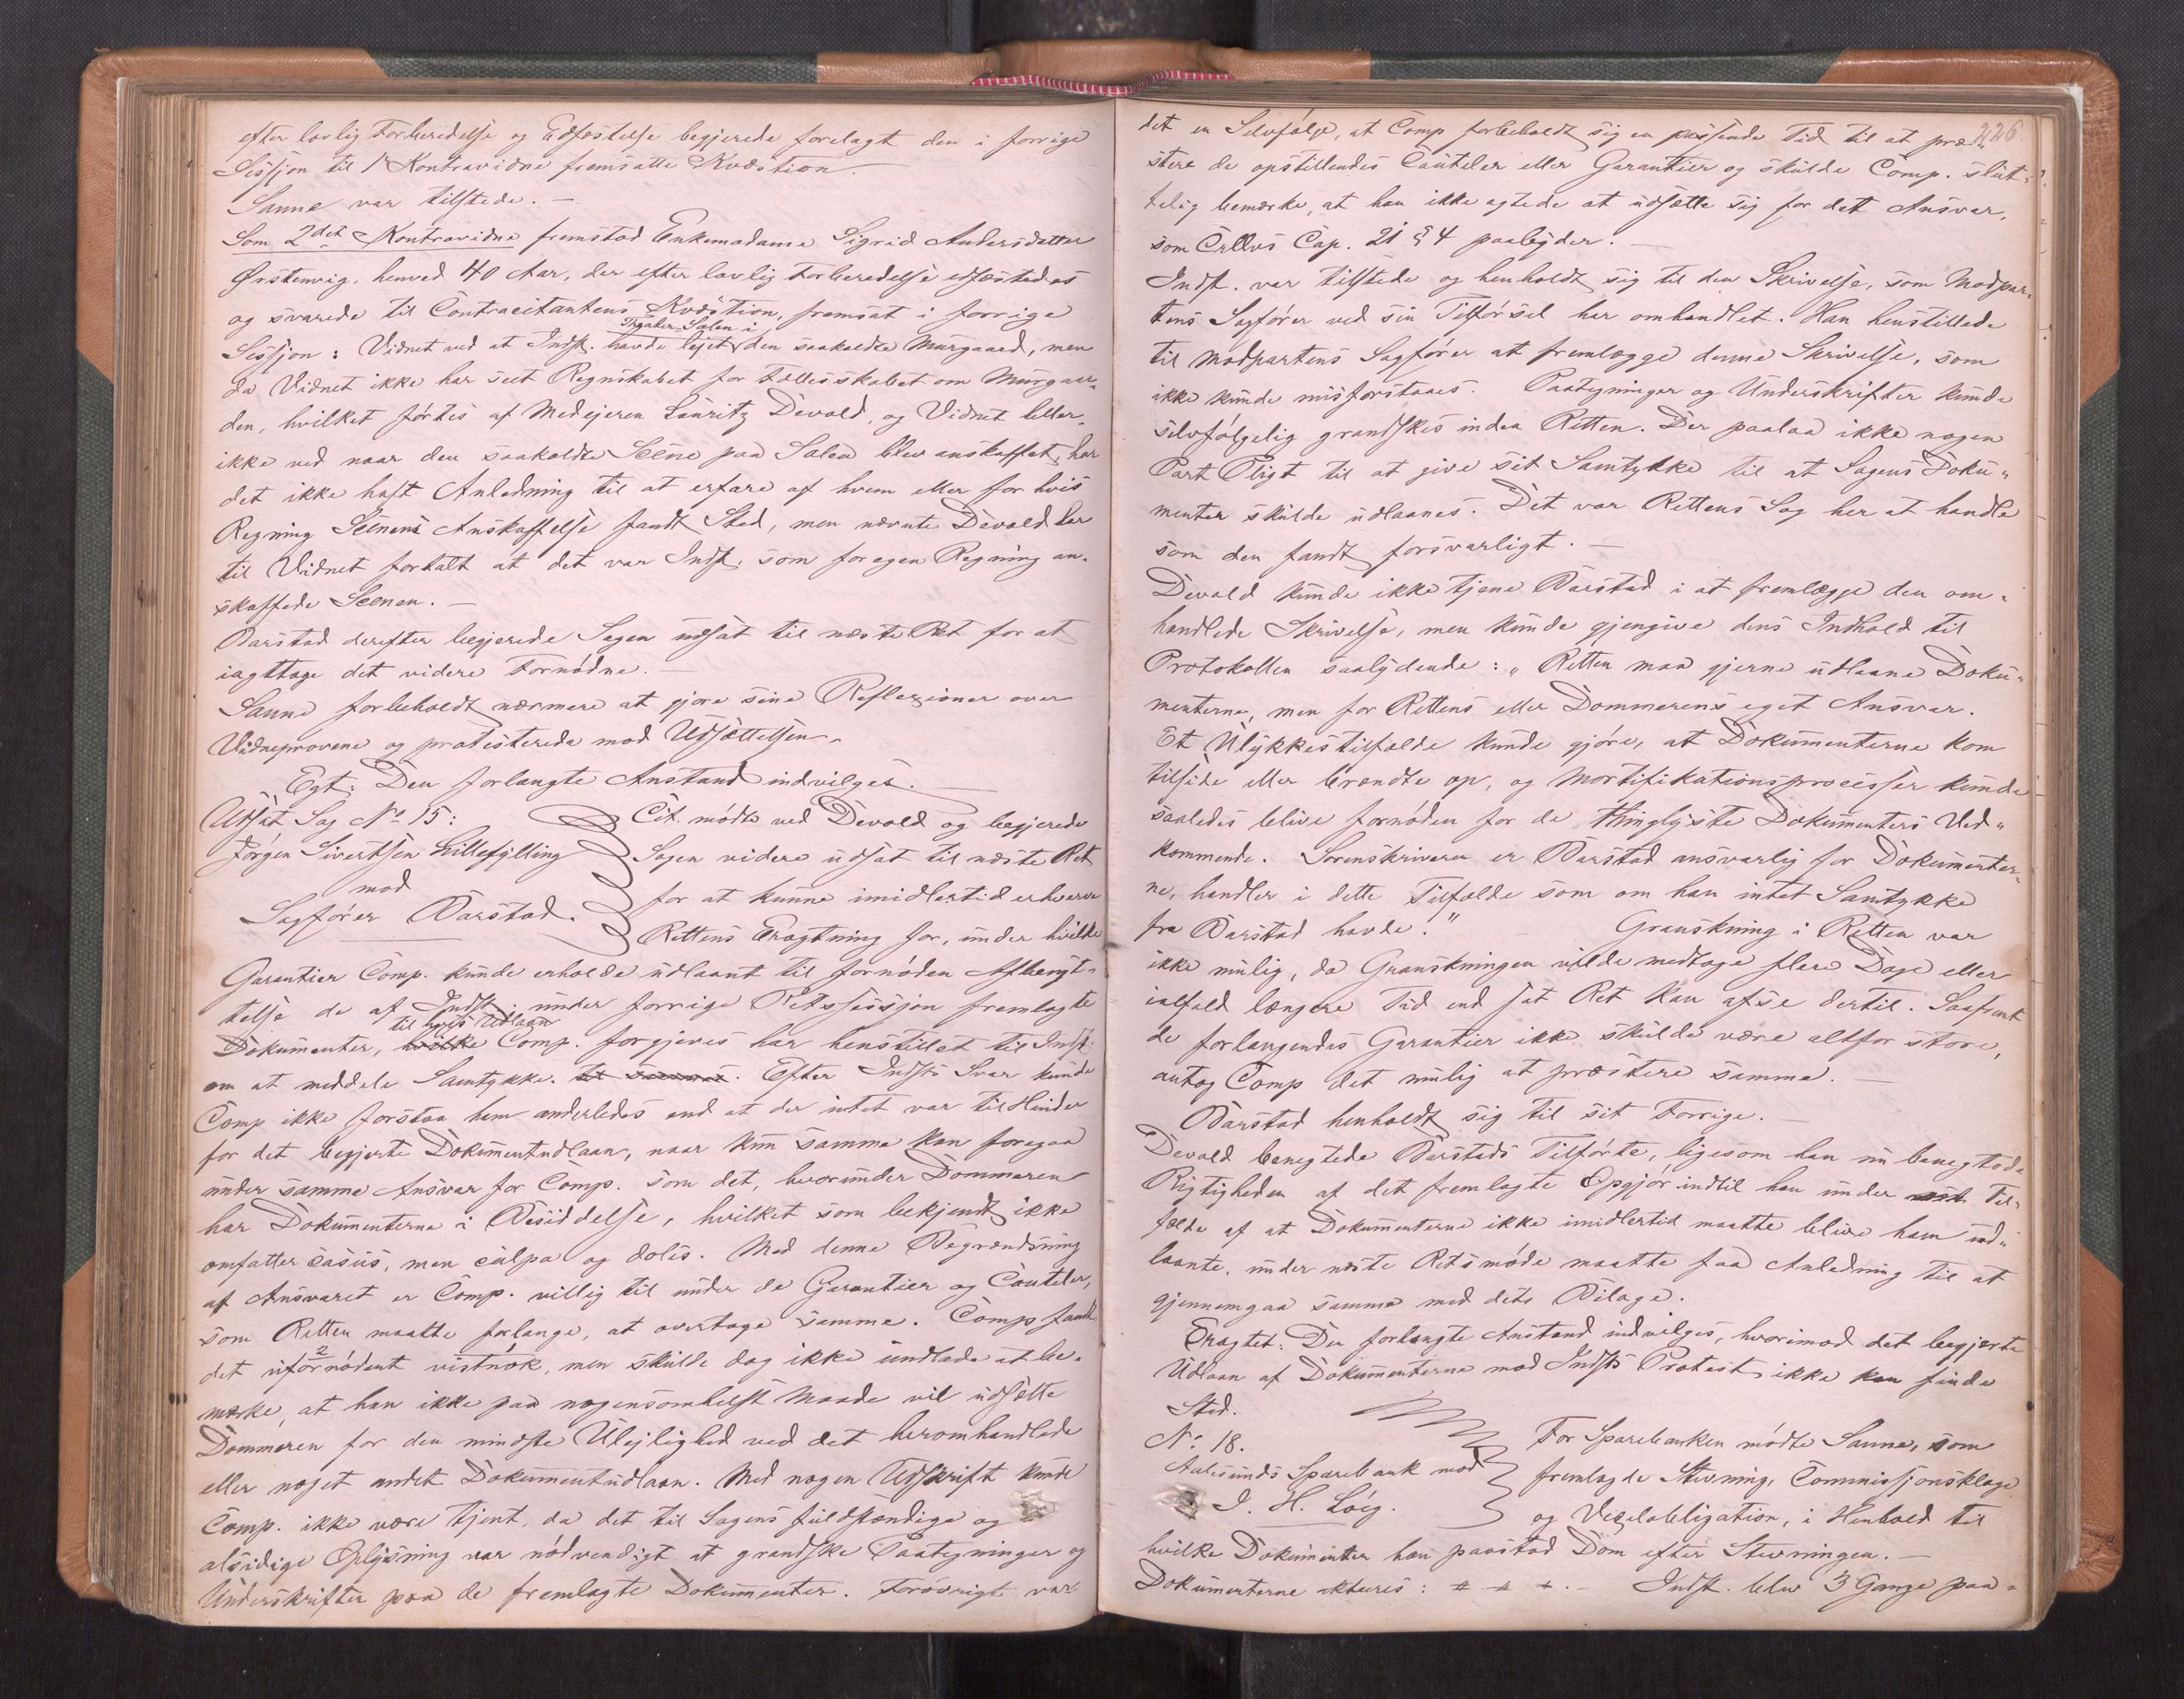 efter lovlig Forberedelse og Edfæstelse begjerede forelagt den i forrige
Sissjon til 1 Kontravidne fremsatte Kvæstion.
Sanne var tilstede. —
Som 2det Kontravidne fremstod Enkemadame Sigrid Andersdatter
Ørstenvig, henved 40 Aar, der efter lovlig Forberedelse edfæstedes
og svarede til Contracitantens Kvæstion, fremsat i forrige
Theater-Salen i
Sessjon: Vidnet ved at Indst. havde lejet den saakaldte Murgaard, men
da Vidnet ikke har seet Regnskabet for Fællesskabet om Murgaar-
den, hvilket førtes af Medejeren Lauritz Devold, og Vidnet heller
ikke ved naar den saakaldte Scene paa Salen blev anskaffet, har
det ikke haft Anledning til at erfare af hvem eller for hvis
Regning Scenens Anskaffelse fandt Sted, men nævnte Devold har
til Vidnet fortalt at det var Indst. som for egen Regning an-
skaffede Scenen. —
Barstad derefter begjerede Sagen udsat til næste Ret for at
iagttage det videre Fornødne.
Sanne forbeholdt nærmere at gjøre sine Reflexioner over
Vidneprovene og protesterede mod Udsættelsen.
Egt: Den forlangte Anstand indvilges.
Udsat Sag No 15:
Jørgen Sivertsen Lillefylling
mod
Sagfører Barstad.
Cit. mødte ved Devold og begjerede
Sagen videre udsat til næste Ret
for at kunne imidlertid erhverve
Rettens Eragtning for, under hvilke
Garantier Comp. kunde erholde udlaant til fornøden Afbenyt-
telse de af Indst. under forrige Retssessjon fremlagte
til hvis Udlaan
Dokumenter, hvilke Comp. forgjeves har henstillet til Indst.
om at meddele Samtykke. til Efter Indsts Svar kunde
Comp ikke forstaa ham anderledes end at der intet var til Hinder
for det begjerte Dokumentudlaan, naar kun samme kan foregaa
under samme Ansvar for Comp. som det, hvorunder Dommeren
har Dokumenterne i Besiddelse, hvilket som bekjendt ikke
omfatter casus, men culpa og dolis. Med denne Begrændsning
af Ansvaret er Comp. villig til under de Garantier og Cauteler,
som Retten maatte forlange, at overtage samme. Comp fandt
det ufornødent vistnok, men skulde dog ikke undlade at be-
mærke, at han ikke paa nogensomhelst Maade vil udsætte
Dommeren for den mindste Ulejlighed ved det heromhandlede
eller noget andet Dokumentudlaan. Med nogen Udskrift kunde
Comp. ikke være tjent, da det til Sagens fuldstændige og
alsidige Oplysning var nødvendigt at grandske Paategninger og
Underskrifter paa de fremlagte Dokumenter. Forøvrigt var
226.
det en Selvfølge, at Comp forbeholdt sig en passende Tid til at præ-
stere de opstillendes Cauteler eller Garantier og skulde Comp. slut-
telig bemærke, at han ikke agtede at udsætte sig for det Ansvar,
som Crllvs Cap. 21 § 4 paabyder. —
Indst. var tilstede og henholdt sig til den Skrivelse, som Modpar-
tens Sagfører ved sin Tilførsel har omhandlet. Han henstillede
til Modpartens Sagfører at fremlægge denne Skrivelse, som
ikke kunde misforstaaes. Paategninger og Underskrifter kunde
selvfølgelig grandskes inden Retten. Der paalaa ikke nogen
Part Pligt til at give sit Samtykke til at Sagens Doku-
menter skulde udlaanes. Det var Rettens Sag her at handle
som den fandt forsvarligt. —
Devold kunde ikke tjene Barstad i at fremlægge den om-
handlede Skrivelse, men kunde gjengive dens Indhold til
Protokollen saalydende: „Retten maa gjerne udlaane Doku-
menterne, men for Rettens eller Dommerens eget Ansvar.
Et Ulykkestilfælde kunde gjøre, at Dokumenterne kom
tilside eller brændte op, og Mortifikationsprocesser kunde
saaledes blive fornøden for de thinglyste Dokumenters Ved-
kommende. Sorenskriveren er Barstad ansvarlig for Dokumenter-
ne, handler i dette Tilfælde som om han intet Samtykke
fra Barstad havde." Granskning i Retten var
ikke mulig, da Granskningen vilde medtage flere Dage eller
ialfald længere Tid end sat Ret kan afse dertil. Saafremt
de forlangendes Garantier ikke skulde være altfor store,
antog Comp det mulig at præstere samme. —
Barstad henholdt sig til sit Forrige. —
Devold benegtede Barstads Tilførte, ligesom han nu benegtede
Rigtigheden af det fremlagte Opgjør indtil han under Til-
fælde af at Dokumenterne ikke imidlertid maatte blive ham ud-
laante, under næste Retsmøde maatte faa Anledning til at
gjennemgaa samme med dets Bilage.
Eragtet: Den forlangte Anstand indvilges, hvorimod det begjerte
Udlaan af Dokumenterne mod Indsts Protest ikke kan finde
Sted.
No 18.
Aalesunds Sparebank mod
I. H. Lóeg.
For Sparebanken mødte Sanne, som
fremlagde Stevning, Commissjonsklage
og Vexelobligation, i Henhold til
hvilke Dokumenter han paastod Dom efter Stevningen. —
Dokumenterne akteres: # # + . — Indst. blev 3 Gange paa-